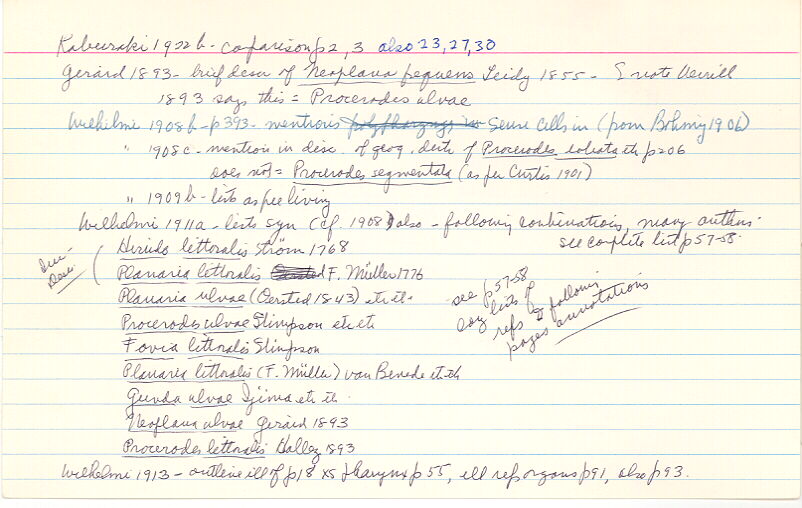 Kaburaki 1922b - comparison p2, 3 also 23, 27, 30
Gerard 1893 - brief descr of Neoplana pequens Leidy 1855 - & note Verrill
1893 says this = Procerodes ulvae
Wilhelmi 1908b - p 393 - mentions sense cells in (from Böhmig 1906)
" 1908c - mention in disc. of geog. distr of Procerodes lobata etc p206
does not = Procerodes segmentata (as per Curtis 1901)
" 1909b - lists as free living
Wilhelmi 1911a - lists syn (cf. 1908) also - following combinations, many authors.
see complete list p 57-58.
Hirudo littoralis Ström 1768
Planaria littoralis F. Müller 1776
Planaria ulvae (Oersted 1843) etc etc
Procerodes ulvae Stimpson etc etc
Fovia littoralis Stimpson
Planaria littoralis (F. Müller) van Benede etc etc
Gunda ulvae Ijima etc etc
Neoplana ulvae Gerard 1893
Procerodes littoralis Hallez 1893
see p 57-58
long lists of
refs & following
pages annotations
Wilhelmi 1913 - outline ill of p18 xs pharynx p 55, ill rep organs p91, also p93.